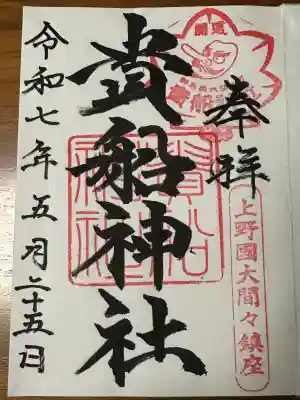 開運
奉拝
上野國大間々鎮座
貴船神社
貴船神社
令和七年五月二十五日